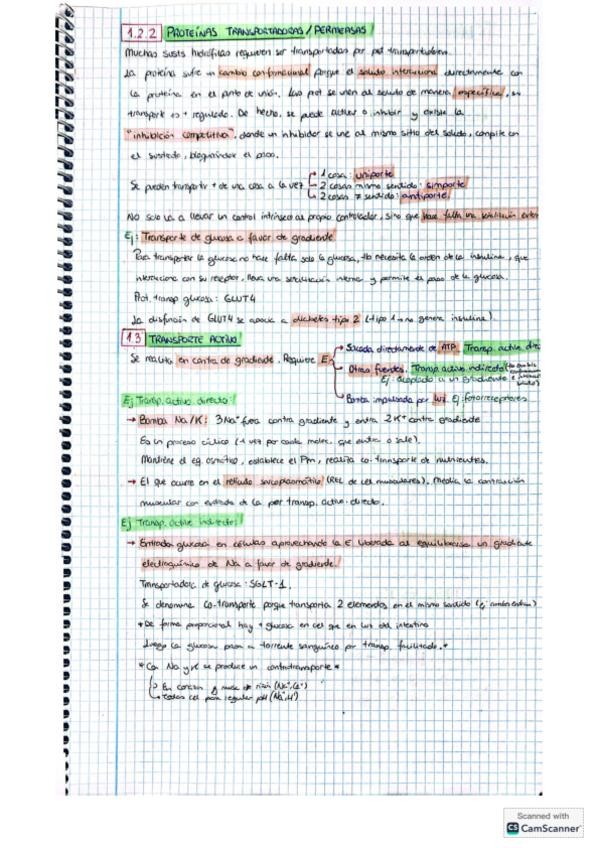 1.2.2 PROTEÍNAS TRANSPORTADORAS / PERMEASAS
Muchas susts hidrófilas requieren ser transportadas por prot transportadora.
La proteína sufre un cambio conformacional porque el soluto interacciona directamente con
la proteína en el punto de unión. Las prot se unen al soluto de manera específica, su
transporte es + regulado. De hecho, se puede activar o inhibir y existe la
"inhibición competitiva", donde un inhibidor se une al mismo sitio del soluto, compite con
el sustrato, bloqueando el paso.
Se pueden transportar + de una cosa a la vez
1 cosa: uniporte
2 cosas mismo sentido: simporte
2 cosas ≠ sentido: antiporte
No solo va a llevar un control intrínseco al propio controlador, sino que hace falta una señalización exter
Ej: Transporte de glucosa a favor de gradiente
Para transportar la glucosa no hace falta solo la glucosa, tb necesita la orden de la insulina, que
interacciona con su receptor, lleva una señalización interna y permite el paso de la glucosa.
Prot. transp glucosa: GLUT4
La disfunción de GLUT4 se asocia a diabetes tipo 2 (tipo 1 → no genera insulina).
1.3 TRANSPORTE ACTIVO
Se realiza en contra de gradiente. Requiere E
Sacada directamente de ATP. Transp. activo dir
Otras fuentes. Transp. activo indirecto
Ej: acoplado a un gradiente
Bomba impulsada por luz. Ej: fotorreceptores
Ej Transp. activo directo:
→ Bomba Na/K: 3Na⁺ fuera contra gradiente y entra 2K⁺ contra gradiente
Es un proceso cíclico (1 vez por cada molec. que entra o sale).
Mantiene el eq. osmótico, establece el Pm, realiza co-transporte de nutrientes.
→ El que ocurre en el retículo sarcoplasmático (REL de cel musculares). Media la contracción
muscular con entrada de Ca por transp. activo directo.
Ej Transp. activo indirecto:
→ Entrada glucosa en células aprovechando la E liberada al equilibrarse un gradiente
electroquímico de Na a favor de gradiente.
Transportadora de glucosa: SGLT-1.
Se denomina co-transporte porque transporta 2 elementos en el mismo sentido (ej: ambos entran)
*De forma proporcional hay + glucosa en cel que en luz del intestino
Luego la glucosa pasa a torrente sanguíneo por transp. facilitado.*
*Con Na y se produce un contratransporte*
En corazón y musc
todas cel para regular pH (Na⁺, H⁺)
Scanned with
CS CamScanner